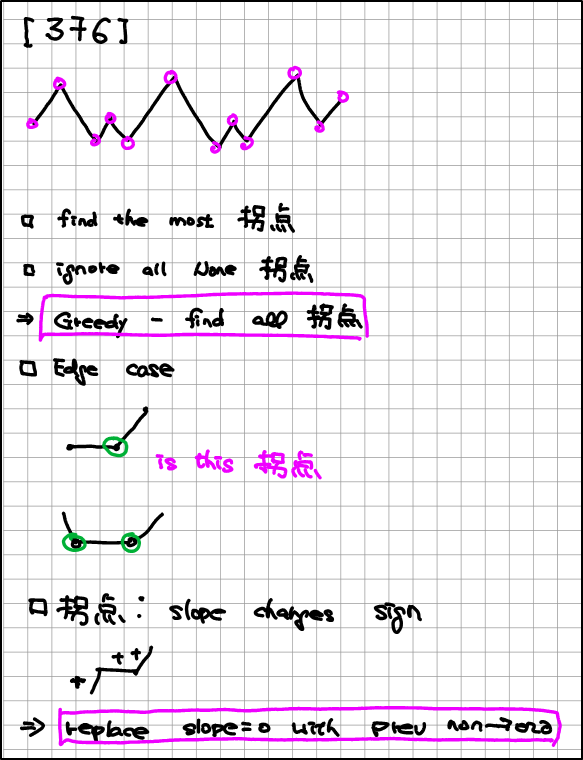 [376]
find the most 拐点
ignote all None 拐点
⇒ Greedy - find all 拐点
Edge case
is this 拐点
拐点: slope changes sign
+ + +
⇒ replace slope=0 with prev non-zero